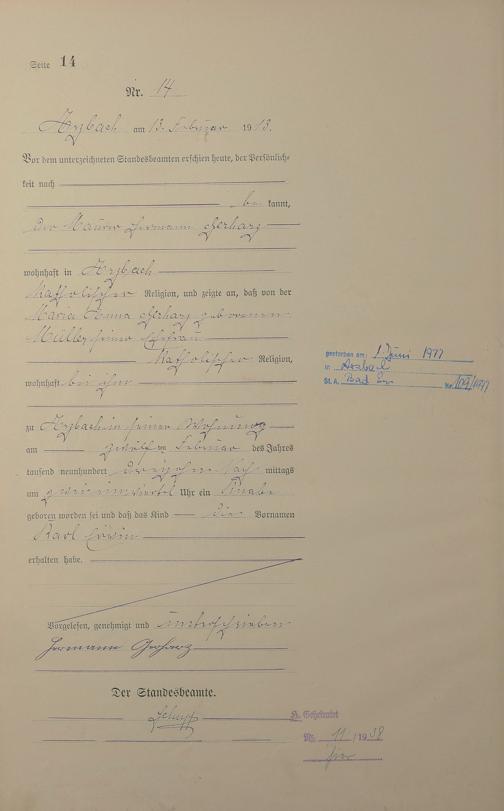 Seite 14
Nr. 14
Arzbach am 13. Februar 1913.
Vor dem unterzeichneten Standesbeamten erschien heute, der Persönlich-
keit nach
be kannt,
der Maurer Hermann Gerharz
wohnhaft in Arzbach
katholischer Religion, und zeigte an, daß von der
Maria Anna Gerharz geborenen
Müller seiner Ehefrau
katholischer Religion,
wohnhaft bei ihm
zu Arzbach in seiner Wohnung
am zwölften Februar des Jahres
tausend neunhundert dreizehn Nach mittags
um Uhr ein Knabe
geboren worden sei und daß das Kind die Vornamen
Karl Erwin
erhalten habe.
Vorgelesen, genehmigt und unterschrieben
Hermann Gerharz
Der Standesbeamte.
gestorben am: 1. Juni 1977
in Arzbach
St. A. Bad Ems Nr. 109/1977
Nr. 11 / 1938